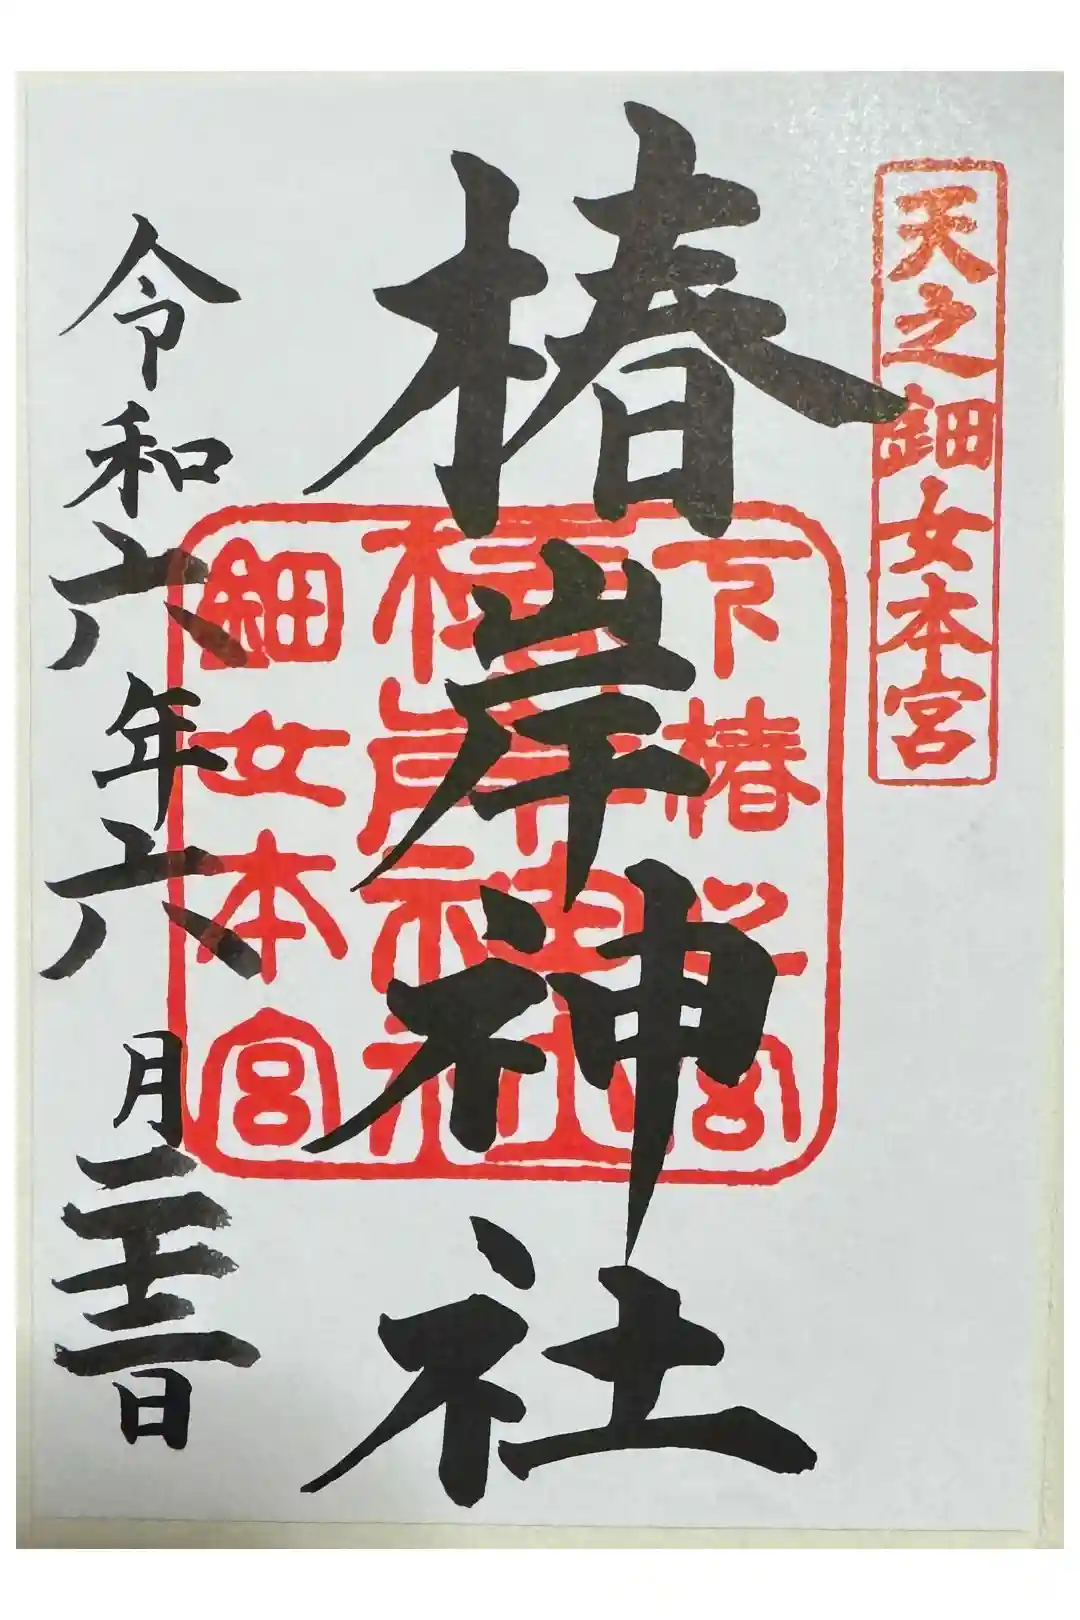 天之鈿女本宮
椿岸神社
椿岸神社
鈿女本宮
令和六年六月二十二日